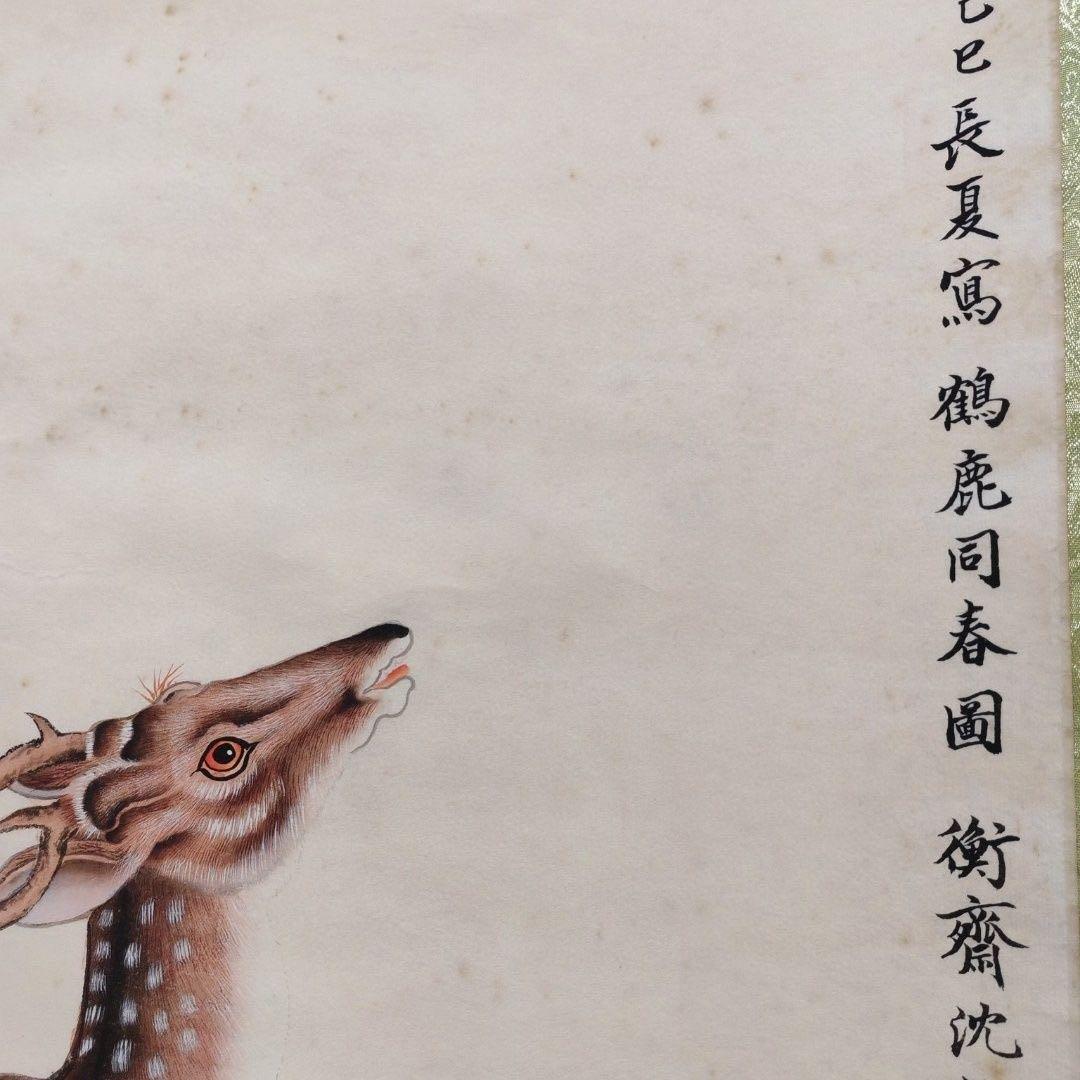 乙巳長夏寫 鶴鹿同春圖 衡齋沈